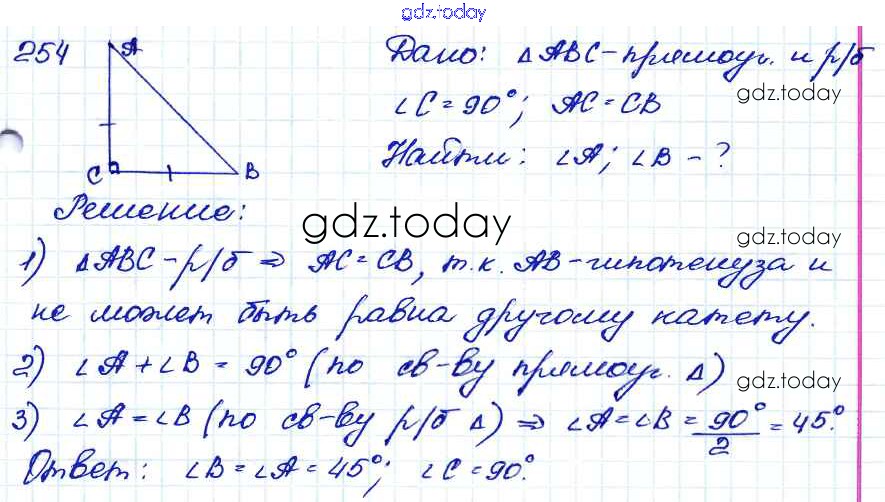 gdz.today
254 A Дано: △ABC-прямоуг. и р/б
gdz.today
∠C = 90°; AC = CB
Найти: ∠A; ∠B - ?
C B
Решение:
gdz.today
gdz.today
1) △ABC-р/б ⇒ AC = CB, т.к. AB-гипотенуза и
не может быть равна другому катету.
2) ∠A + ∠B = 90° (по св-ву прямоуг. △)
gdz.today
3) ∠A = ∠B (по св-ву р/б △) ⇒ ∠A = ∠B = 90°/2 = 45°.
Ответ: ∠B = ∠A = 45°; ∠C = 90°.